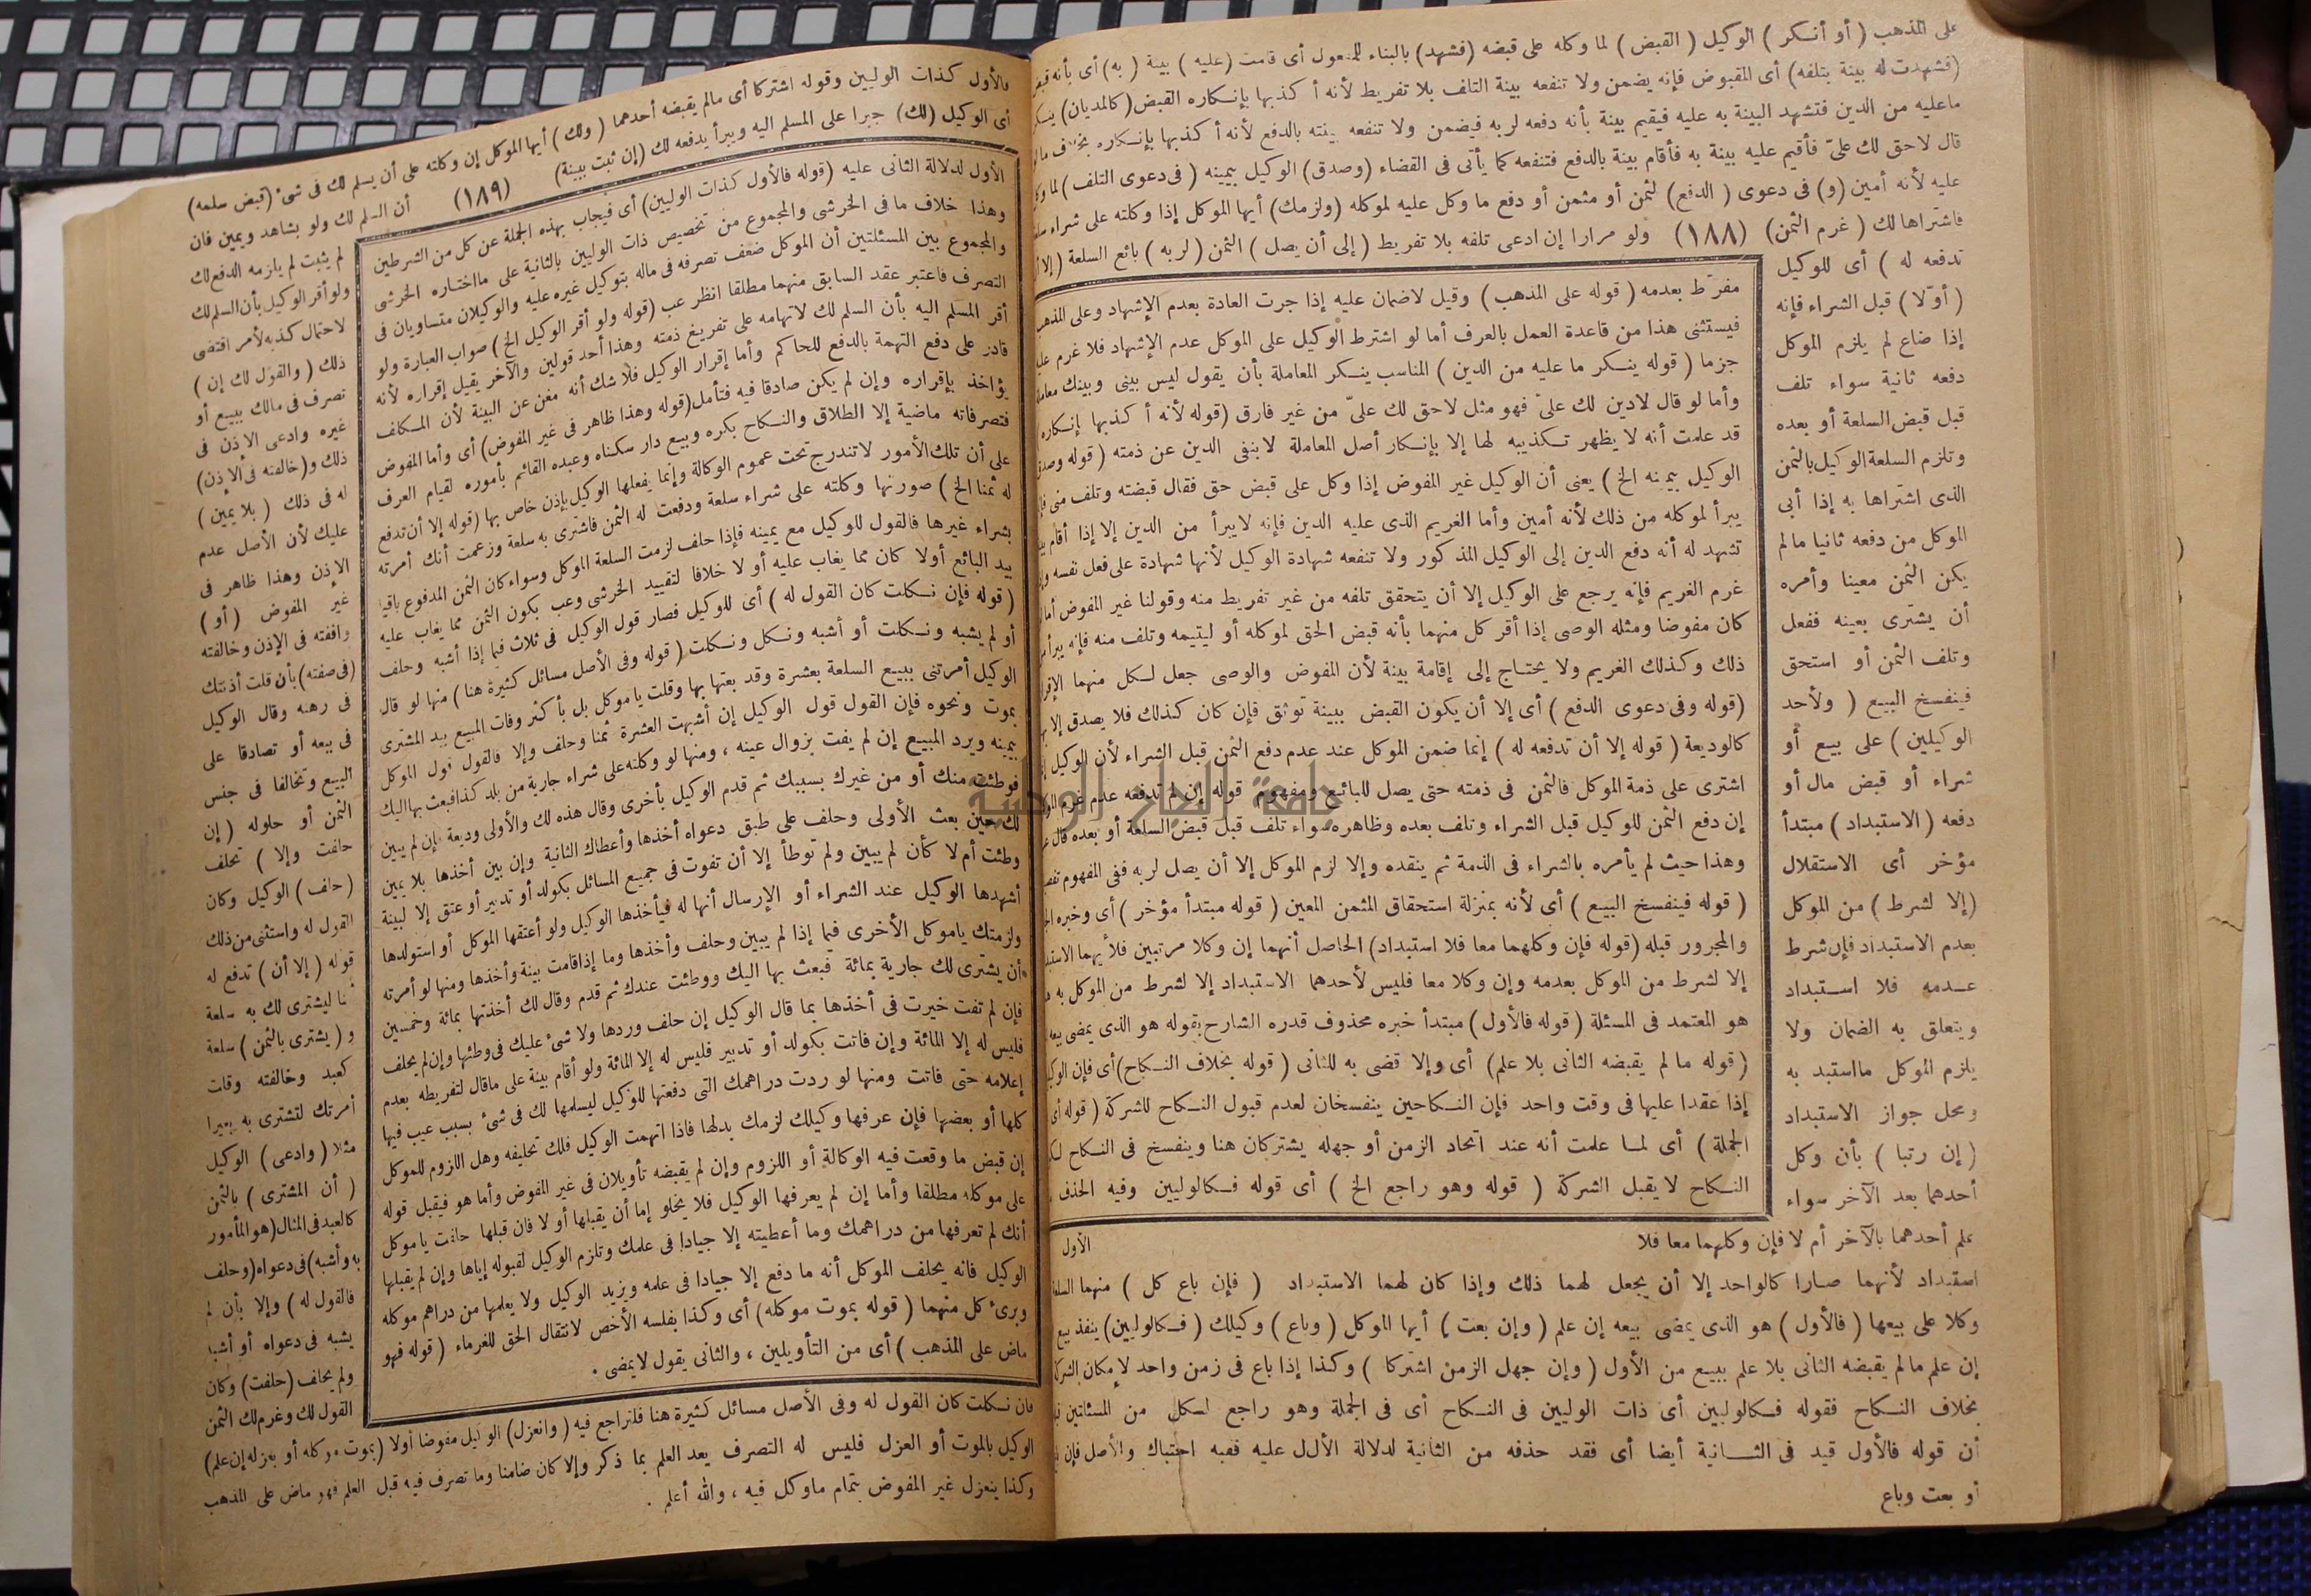 على المذهب (أو أنكر) الوكيل (القبض) لما وكله على قبضه (فشهد) بالبناء للمفعول أى قامت (عليه) بينة (به) أى بأنه قبض
(فشهدت له بينة بتلفه) أى المقبوض فإنه يضمن ولا تنفعه بينة التلف بلا تفريط لأنه أكذبها بإنكاره القبض (كالمديان) ينكر
ماعليه من الدين فتشهد البينة به عليه فيقيم بينة بأنه دفعه لربه فيضمن ولا تنفعه بينته بالدفع لأنه أكذبها بإنكاره بخلاف ما لو
قال لاحق لك علىّ فأقيم عليه بينة به فأقام بينة بالدفع فتنفعه كما يأتى فى القضاء (وصدق) الوكيل بيمينه (فى دعوى التلف) لما وكل
عليه لأنه أمين (و) فى دعوى (الدفع) لثمن أو مثمن أو دفع ما وكل عليه لموكله (ولزمك) أيها الموكل إذا وكلته على شراء سلعة
فاشتراها لك (غرم الثمن) (١٨٨) ولو مرارا إن ادعى تلفه بلا تفريط (إلى أن يصل) الثمن (لربه) بائع السلعة (إلا أن
تدفعه له) أى للوكيل
(أوّلا) قبل الشراء فإنه
إذا ضاع لم يلزم الموكل
دفعه ثانية سواء تلف
قبل قبض السلعة أو بعده
وتلزم السلعة الوكيل بالثمن
الذى اشتراها به إذا أبى
الموكل من دفعه ثانيا مالم
يكن الثمن معينا وأمره
أن يشترى بعينه ففعل
وتلف الثمن أو استحق
فينفسخ البيع (ولأحد
الوكيلين) على بيع أو
شراء أو قبض مال أو
دفعه (الاستبداد) مبتدأ
مؤخر أى الاستقلال
(إلا لشرط) من الموكل
بعدم الاستبداد فإن شرط
عدمه فلا استبداد
ويتعلق به الضمان ولا
يلزم الموكل مااستبد به
ومحل جواز الاستبداد
(إن رتبا) بأن وكل
أحدهما بعد الآخر سواء
علم أحدهما بالآخر أم لا فإن وكلهما معا فلا
استبداد لأنهما صارا كالواحد إلا أن يجعل لهما ذلك وإذا كان لهما الاستبداد (فإن باع كل) منهما السلعة
وكلا على بيعها (فالأول) هو الذى يمضى بيعه إن علم (وإن بعت) أيها الموكل (وباع) وكيلك (فكالوليين) ينفذ بيع
إن علم مالم يقبضه الثانى بلا علم ببيع من الأول (وإن جهل الزمن اشتركا) وكذا إذا باع فى زمن واحد لإمكان الشركة
بخلاف النكاح فقوله فكالوليين أى ذات الوليين فى النكاح أى فى الجملة وهو راجع لكل من المسئلتين
أن قوله فالأول قيد فى الثانية أيضا أى فقد حذفه من الثانية لدلالة الأول عليه ففيه احتباك والأصل فإن
أو بعت وباع
مفرّط بعدمه (قوله على المذهب) وقيل لاضمان عليه إذا جرت العادة بعدم الإشهاد وعلى المذهب
فيستثنى هذا من قاعدة العمل بالعرف أما لو اشترط الوكيل على الموكل عدم الإشهاد فلا غرم عليه
جزما (قوله ينكر ما عليه من الدين) المناسب ينكر المعاملة بأن يقول ليس بينى وبينك معاملة
وأما لو قال لادين لك علىّ فهو مثل لاحق لك علىّ من غير فارق (قوله لأنه أكذبها بإنكاره
قد علمت أنه لا يظهر تكذيبه لها إلا بإنكار أصل المعاملة لابنفى الدين عن ذمته (قوله وصدق
الوكيل بيمينه الخ) يعنى أن الوكيل غير المفوض إذا وكل على قبض حق فقال قبضته وتلف منى فإنه
يبرأ لموكله من ذلك لأنه أمين وأما الغريم الذى عليه الدين فإنه لايبرأ من الدين إلا إذا أقام بينة
تشهد له أنه دفع الدين إلى الوكيل المذكور ولا تنفعه شهادة الوكيل لأنها شهادة على فعل نفسه وإذا
غرم الغريم فإنه يرجع على الوكيل إلا أن يتحقق تلفه من غير تفريط منه وقولنا غير المفوض أما
كان مفوضا ومثله الوصى إذا أقر كل منهما بأنه قبض الحق لموكله أو ليتيمه وتلف منه فإنه يبرأ من
ذلك وكذلك الغريم ولا يحتاج إلى إقامة بينة لأن المفوض والوصى جعل لكل منهما الإقرار
(قوله وفى دعوى الدفع) أى إلا أن يكون القبض ببينة توثق فإن كان كذلك فلا يصدق إلا بها
كالوديعة (قوله إلا أن تدفعه له) إنما ضمن الموكل عند عدم دفع الثمن قبل الشراء لأن الوكيل
اشترى على ذمة الموكل فالثمن فى ذمته حتى يصل للبائع ومفهوم قوله إن لم تدفعه عدم غرم
إن دفع الثمن للوكيل قبل الشراء وتلف بعده وظاهره سواء تلف قبل قبض السلعة أو بعده قال
وهذا حيث لم يأمره بالشراء فى الذمة ثم ينقده وإلا لزم الموكل إلا أن يصل لربه ففى المفهوم تفصيل
(قوله فينفسخ البيع) أى لأنه بمنزلة استحقاق المثمن المعين (قوله مبتدأ مؤخر) أى وخبره الجار
والمجرور قبله (قوله فإن وكلهما معا فلا استبداد) الحاصل أنهما إن وكلا مرتبين فلأيهما الاستبداد
إلا لشرط من الموكل بعدمه وإن وكلا معا فليس لأحدهما الاستبداد إلا لشرط من الموكل به
هو المعتمد فى المسئلة (قوله فالأول) مبتدأ خبره محذوف قدره الشارح بقوله هو الذى يمضى بيعه
(قوله ما لم يقبضه الثانى بلا علم) أى وإلا قضى به للثانى (قوله بخلاف النكاح) أى فإن
إذا عقدا عليها فى وقت واحد فإن النكاحين ينفسخان لعدم قبول النكاح للشركة (قوله أى
الجملة) أى لما علمت أنه عند اتحاد الزمن أو جهله يشتركان هنا وينفسخ فى النكاح
النكاح لا يقبل الشركة (قوله وهو راجع الخ) أى قوله فكالوليين وفيه الحذف
الأول
فالأول كذات الوليين وقوله اشتركا أى مالم يقبضه أحدهما (ولك) أيها الموكل إن وكلته على أن يسلم لك فى شىء (قبض سلمه)
أى الوكيل (لك) جبرا على المسلم اليه ويبرأ بدفعه لك (إن ثبت ببينة) (١٨٩) أن السلم لك ولو بشاهد ويمين فان
لم يثبت لم يلزمه الدفع لك
ولو أقر الوكيل بأن السلم لك
لاحتمال كذبه لأمر اقتضى
ذلك (والقول لك إن)
تصرف فى مالك ببيع أو
غيره وادعى الإذن فى
ذلك و(خالفته فى الإذن)
له فى ذلك (بلا يمين)
عليك لأن الأصل عدم
الإذن وهذا ظاهر فى
غير المفوض (أو)
وافقته فى الإذن وخالفته
(فى صفته) بأن قلت أذنتك
فى رهنه وقال الوكيل
فى بيعه أو تصادقا على
البيع وتخالفا فى جنس
الثمن أو حلوله (إن
حلفت وإلا) تحلف
(حلف) الوكيل وكان
القول له واستثنى من ذلك
قوله (إلا أن) تدفع له
ثمنا ليشترى لك به سلعة
و(يشترى بالثمن) سلعة
كعبد وخالفته وقلت
أمرتك لتشترى به بعيرا
مثلا (وادعى) الوكيل
(أن المشترى) بالثمن
كالعبد فى المثال (هو المأمور
به وأشبه) فى دعواه (وحلف
فالقول له) وإلا بأن لم
يشبه فى دعواه أو أشبه
ولم يحلف (حلفت) وكان
القول لك وغرم لك الثمن
فان نكلت كان القول له وفى الأصل مسائل كثيرة هنا فلتراجع فيه (وانعزل) الوكيل مفوضا أولا (بموت موكله أو بعزله إن علم)
الوكيل بالموت أو العزل فليس له التصرف بعد العلم بما ذكر وإلا كان ضامنا وما تصرف فيه قبل العلم فهو ماض على المذهب
وكذا ينعزل غير المفوض بتمام ماوكل فيه، والله أعلم.
الأول لدلالة الثانى عليه (قوله فالأول كذات الوليين) أى فيجاب بهذه الجملة عن كل من الشرطين
وهذا خلاف ما فى الخرشى والمجموع من تخصيص ذات الوليين بالثانية على مااختاره الخرشى
والمجموع بين المسئلتين أن الموكل ضعف تصرفه فى ماله بتوكيل غيره عليه والوكيلان متساويان فى
التصرف فاعتبر عقد السابق منهما مطلقا انظر عب (قوله ولو أقر الوكيل الخ) صواب العبارة ولو
أقر المسلم اليه بأن السلم لك لاتهامه على تفريغ ذمته وهذا أحد قولين والآخر يقبل إقراره لأنه
قادر على دفع التهمة بالدفع للحاكم وأما إقرار الوكيل فلا شك أنه مغن عن البينة لأن المكلف
يؤاخذ بإقراره وإن لم يكن صادقا فيه فتأمل (قوله وهذا ظاهر فى غير المفوض) أى وأما المفوض
فتصرفاته ماضية إلا الطلاق والنكاح بكره وبيع دار سكناه وعبده القائم بأموره لقيام العرف
على أن تلك الأمور لاتندرج تحت عموم الوكالة وإنما يفعلها الوكيل بإذن خاص بها (قوله إلا أن تدفع
له ثمنا الخ) صورتها وكلته على شراء سلعة ودفعت له الثمن فاشترى به سلعة وزعمت أنك أمرته
بشراء غيرها فالقول للوكيل مع يمينه فإذا حلف لزمت السلعة الموكل وسواء كان الثمن المدفوع باقيا
بيد البائع أولا كان مما يغاب عليه أو لا خلافا لتقييد الخرشى وعب بكون الثمن مما يغاب عليه
(قوله فإن نكلت كان القول له) أى للوكيل فصار قول الوكيل فى ثلاث فيما إذا أشبه وحلف
أو لم يشبه ونكلت أو أشبه ونكل ونكلت (قوله وفى الأصل مسائل كثيرة هنا) منها لو قال
الوكيل أمرتنى ببيع السلعة بعشرة وقد بعتها بها وقلت يا موكل بل بأكثر وفات المبيع بيد المشترى
بموت ونحوه فإن القول قول الوكيل إن أشبهت العشرة ثمنا وحلف وإلا فالقول قول الموكل
بيمينه ويرد المبيع إن لم يفت بزوال عينه، ومنها لو وكلته على شراء جارية من بلد كذا فبعث بها اليك
فوطئت منك أو من غيرك بسببك ثم قدم الوكيل بأخرى وقال هذه لك والأولى وديعة فإن لم يبين
لك حين بعث الأولى وحلف على طبق دعواه أخذها وأعطاك الثانية وإن بين أخذها بلا يمين
وطئت أم لا كأن لم يبين ولم توطأ إلا أن تفوت فى جميع المسائل بكولد أو تدبير أو عتق إلا لبينة
أشهدها الوكيل عند الشراء أو الإرسال أنها له فيأخذها الوكيل ولو أعتقها الموكل أو استولدها
ولزمتك ياموكل الأخرى فيما إذا لم يبين وحلف وأخذها وما إذا قامت بينة وأخذها ومنها لو أمرته
أن يشترى لك جارية بمائة فبعث بها اليك ووطئت عندك ثم قدم وقال لك أخذتها بمائة وخمسين
فإن لم تفت خيرت فى أخذها بما قال الوكيل إن حلف وردها ولا شىء عليك فى وطئها وإن لم يحلف
فليس له إلا المائة وإن فاتت بكولد أو تدبير فليس له إلا المائة ولو أقام بينة على ماقال لتفريطه بعدم
إعلامه حتى فاتت ومنها لو ردت دراهمك التى دفعتها للوكيل ليسلمها لك فى شىء بسبب عيب فيها
كلها أو بعضها فإن عرفها وكيلك لزمك بدلها فاذا اتهمت الوكيل فلك تحليفه وهل اللزوم للموكل
إن قبض ما وقعت فيه الوكالة أو اللزوم وإن لم يقبضه تأويلان فى غير المفوض وأما هو فيقبل قوله
على موكله مطلقا وأما إن لم يعرفها الوكيل فلا يخلو إما أن يقبلها أو لا فان قبلها حلفت يا موكل
أنك لم تعرفها من دراهمك وما أعطيته إلا جيادا فى علمك وتلزم الوكيل لقبوله إياها وإن لم يقبلها
الوكيل فانه يحلف الموكل أنه ما دفع إلا جيادا فى علمه ويزيد الوكيل ولا يعلمها من دراهم موكله
وبرئ كل منهما (قوله بموت موكله) أى وكذا بفلسه الأخص لانتقال الحق للغرماء (قوله فهو
ماض على المذهب) أى من التأويلين، والثانى يقول لايمضى.
جامعة النجاح الوطنية